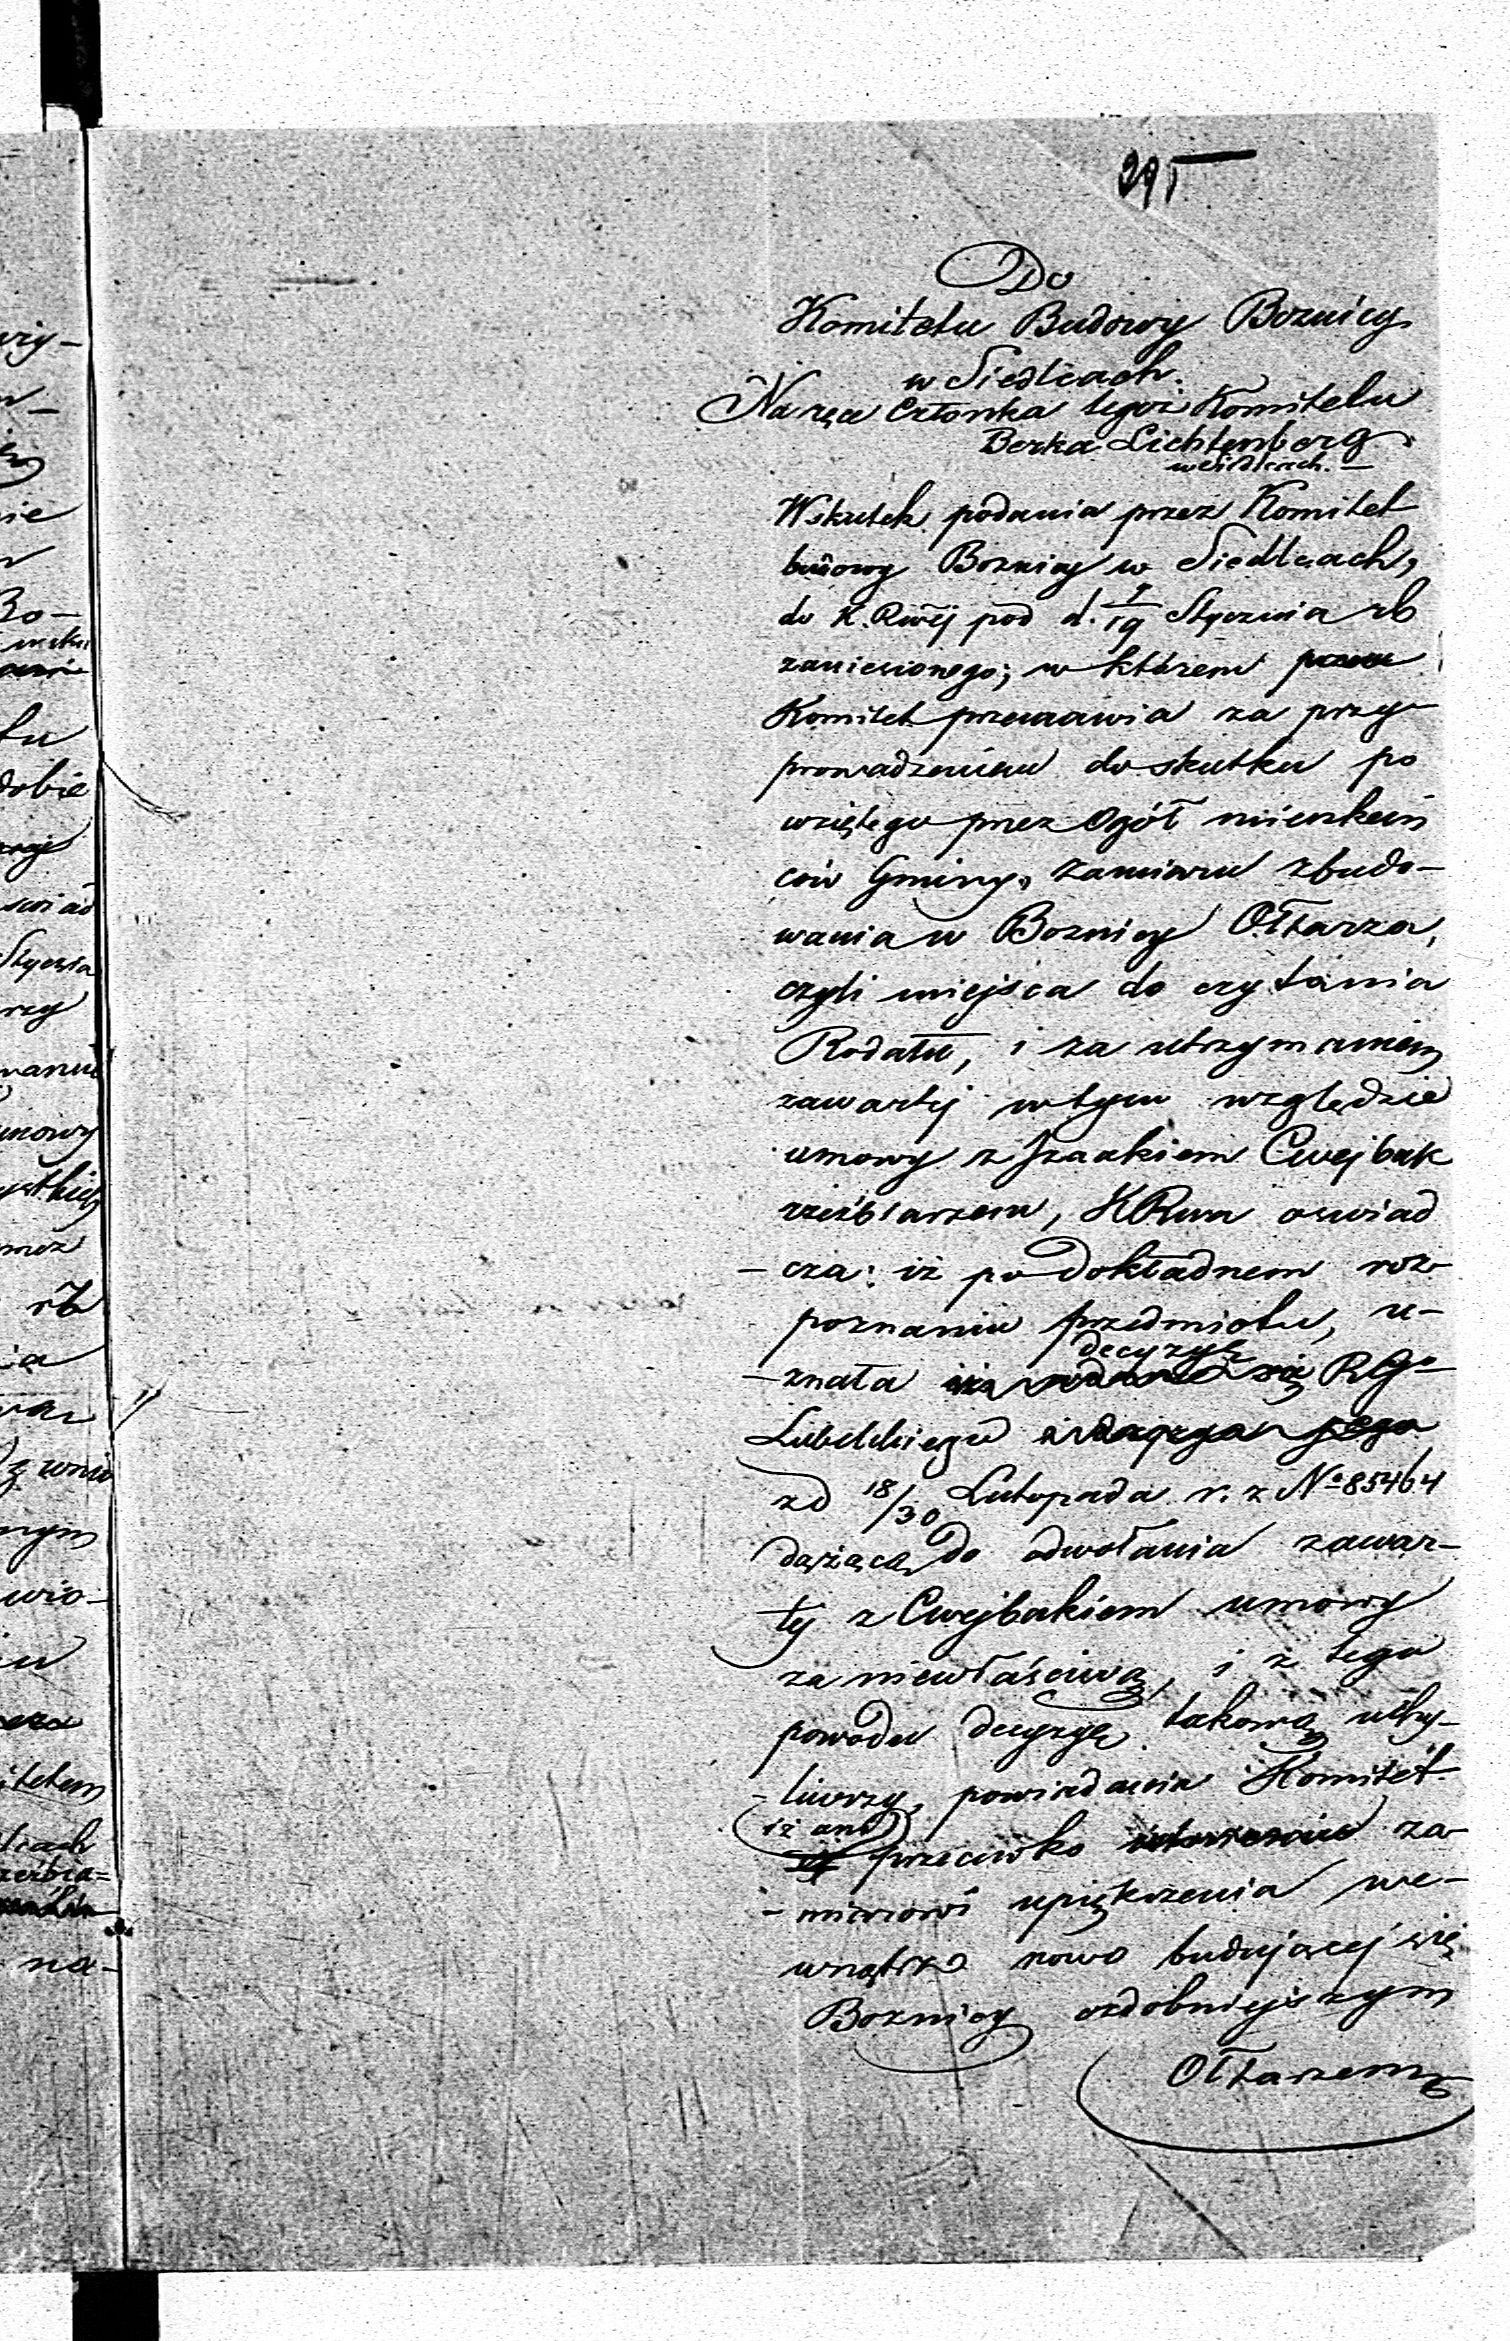 291
Do
Komitetu Budowy Boznicy
w Siedlcach.
Na ręce Członka tegoż Komitetu
Berka Lichtenberg
w Siedlcach. —
Wskutek podania przez Komitet
budowy Boznicy w Siedlcach,
do K. Rwéj pod d. 7/19 Stycznia rb
zaniesionego; w którem
Komitet przemawia za przy-
prowadzeniem do skutku po
wziętego przez Ogół mieszkań
ców Gminy, zamiaru zbudo-
wania w Boznicy Ołtarza,
czyli miejsca do czytania
Rodału, i za utrzymaniem
zawartéj w tym względzie
umowy z Izaakiem Cwejbak
rzeźbiarzem, KRwa oswiad
- cza: iż po dokładnem roz-
poznaniu przedmiotu, u-
decyzyę
- znała RGo
Lubelskiego
z d 18/30 Listopada r. z No 85464
dążącą do odwołania zawar-
téj z Cwejbakiem umowy
za niewłaściwą, i z tego
powodu decyzyę takową uchy-
- liwszy, powiadamia Komitet
iż
przeciwko za-
- miarowi upiększenia we-
wnątrz nowo budującej się
Boznicy ozdobniejszym
Ołtarzem
wy-
nie
Bo-
tu
dobie
swiad
Stycznia
rzy
umowy
rb
ia
nym
wio-
itetem
lcach
na-